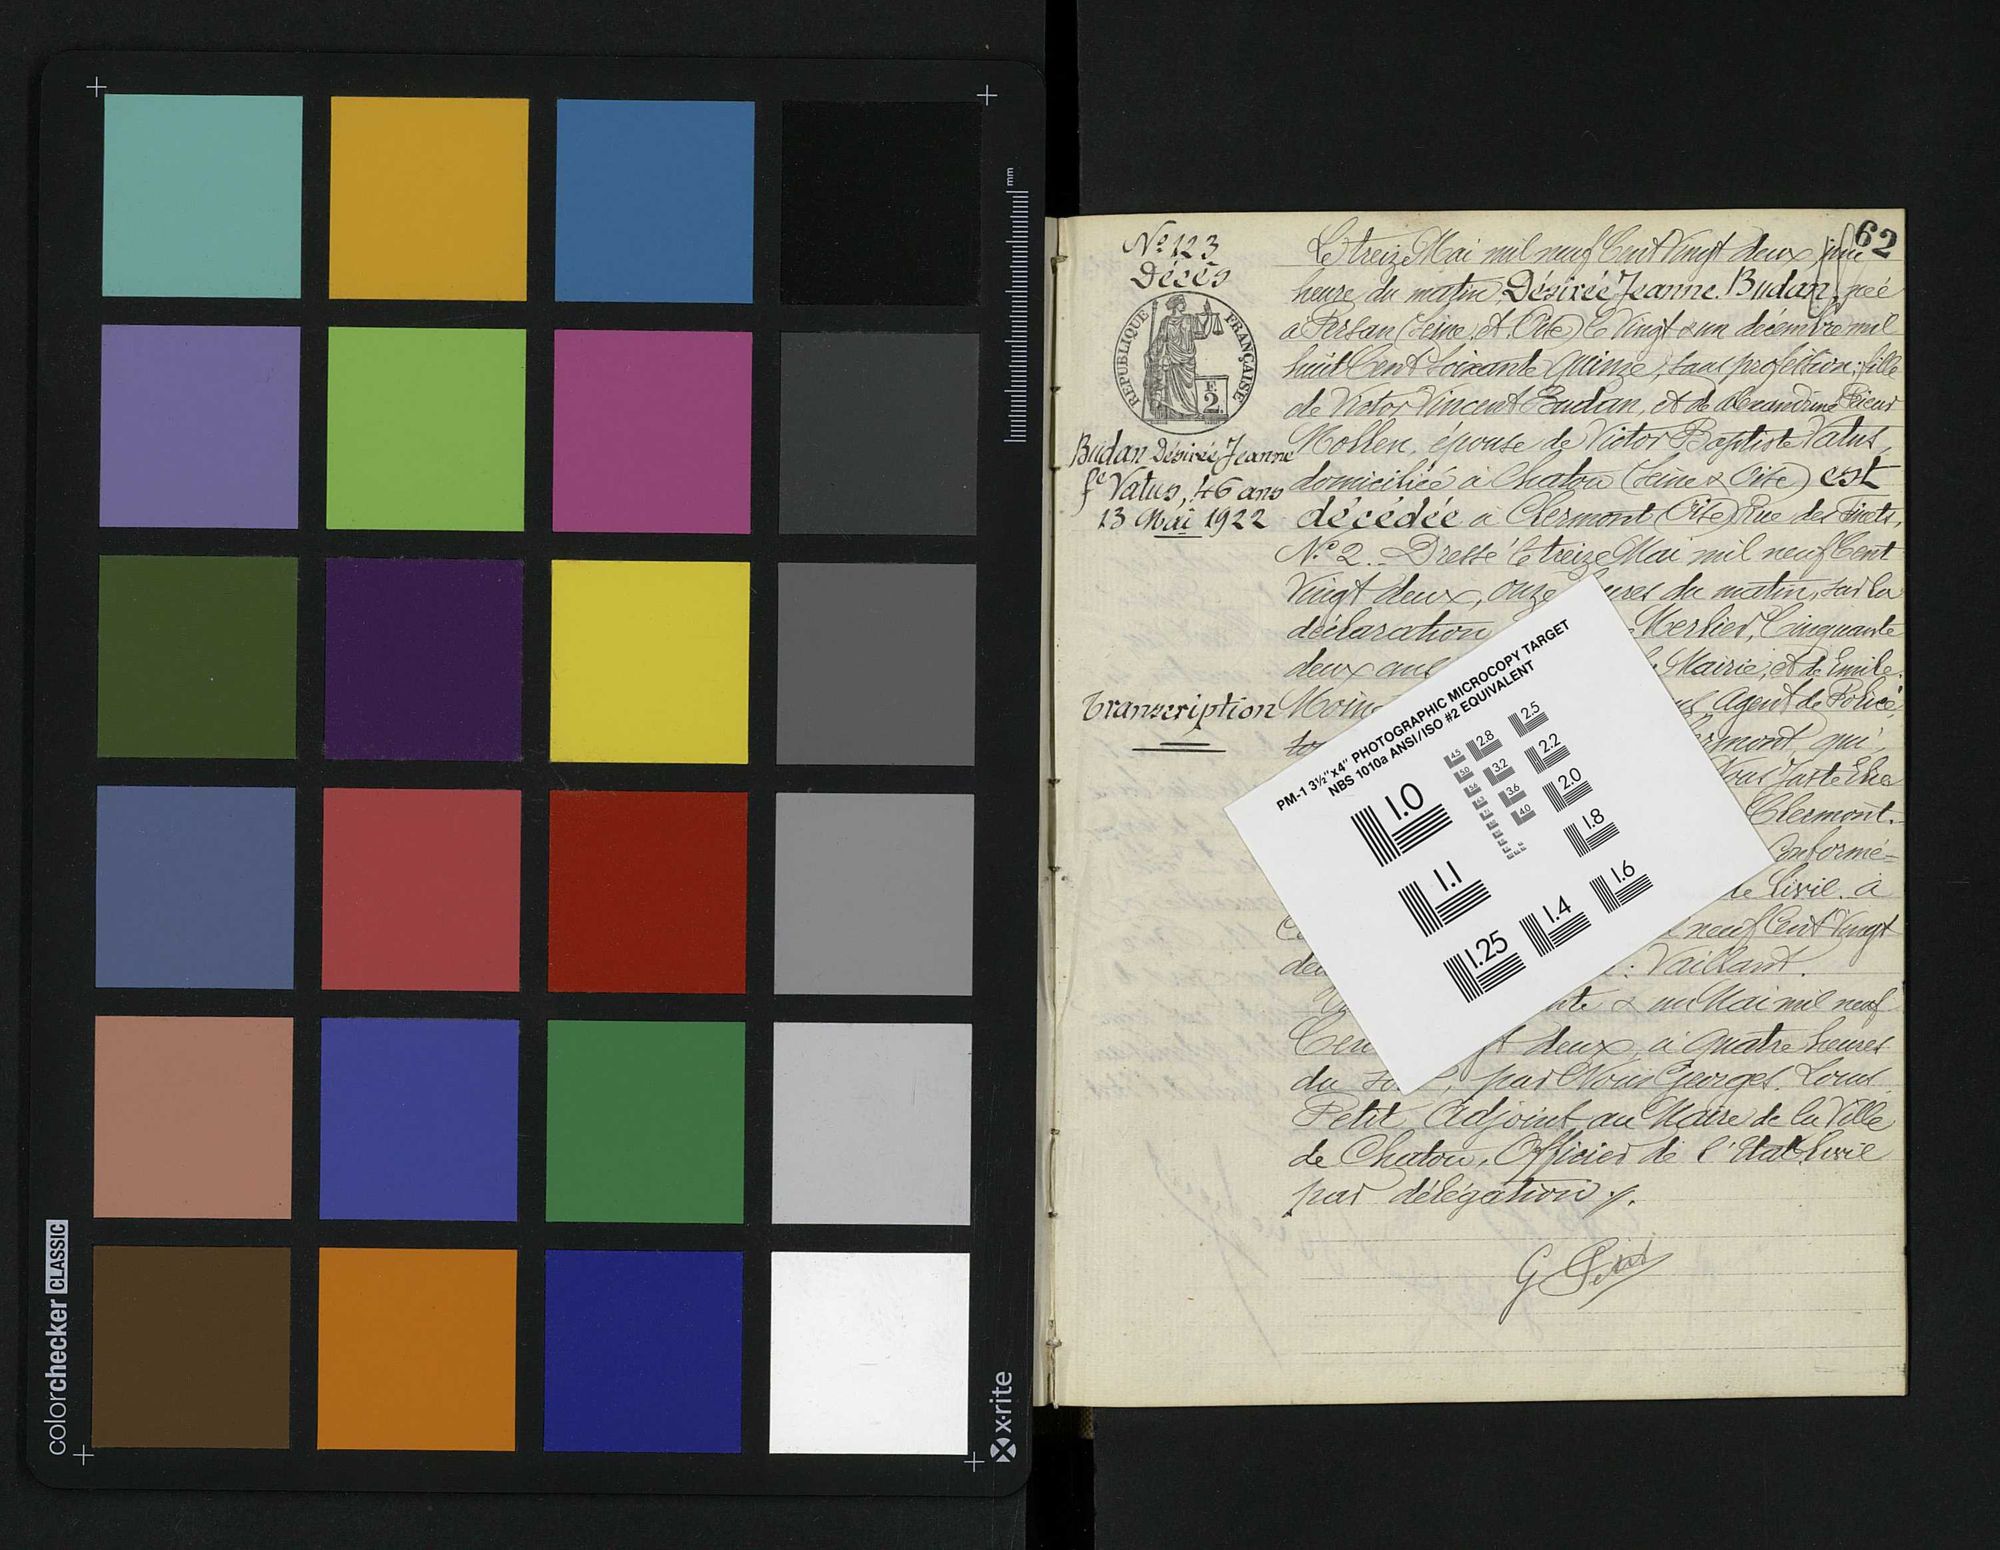 colorchecker CLASSIC
mm
x·rite
62
Nº 123
Décès
RÉPUBLIQUE FRANÇAISE
E
2.
Budan Désirée Jeanne
fe Vatus, 46 ans
13 Mai 1922
Transcription
Le treize Mai mil neuf Cent Vingt deux, une
heure du matin, Désirée Jeanne Budan, née
à Persan (Seine et Oise) le Vingt & un décembre mil
huit Cent Soixante Quinze, sans profession; fille
de Victor Vincent Budan, et de Alexandrine
épouse de Victor Baptiste Vatus,
domiciliée à Chatou (Seine & Oise) est
décédée à Clermont (Oise) Rue des
Nº 2. Dressé le treize Mai mil neuf Cent
Vingt deux, onze heures du matin, sur la
déclaration Merlier, Cinquante
deux ans Mairie, et de Emile
Agent de Police,
Clermont, qui,
Nous Juste
Clermont.
Conformé-
Civil à
neuf Cent Vingt
: Vaillant.
& un Mai mil neuf
deux, à quatre heures
du par Nous Georges Louis
Petit Adjoint au Maire de la Ville
de Chatou, Officier de l'Etat Civil
par délégation %.
G Petit
PM-1 3½"x4" PHOTOGRAPHIC MICROCOPY TARGET
NBS 1010a ANSI/ISO #2 EQUIVALENT
4.5 2.8 2.5
5.0 3.2 2.2
1.0 5.6 3.6 2.0
4.0 1.8
1.1 1.6
1.4
1.25